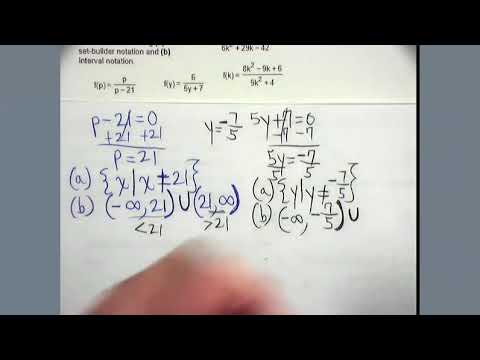 set-builder notation and (b)
interval notation.
6k² + 29k − 42
f(p) = p / p − 21
f(y) = 6 / 5y + 7
f(k) = 8k² − 9k + 6 / 9k² + 4
p − 21 = 0
+21 +21
p = 21
(a) {x | x ≠ 21}
(b) (−∞, 21) ∪ (21, ∞)
< 21 > 21
y = −7/5
5y + 7 = 0
−7 −7
5y/5 = −7/5
(a) {y | y ≠ −7/5}
(b) (−∞, −7/5) ∪